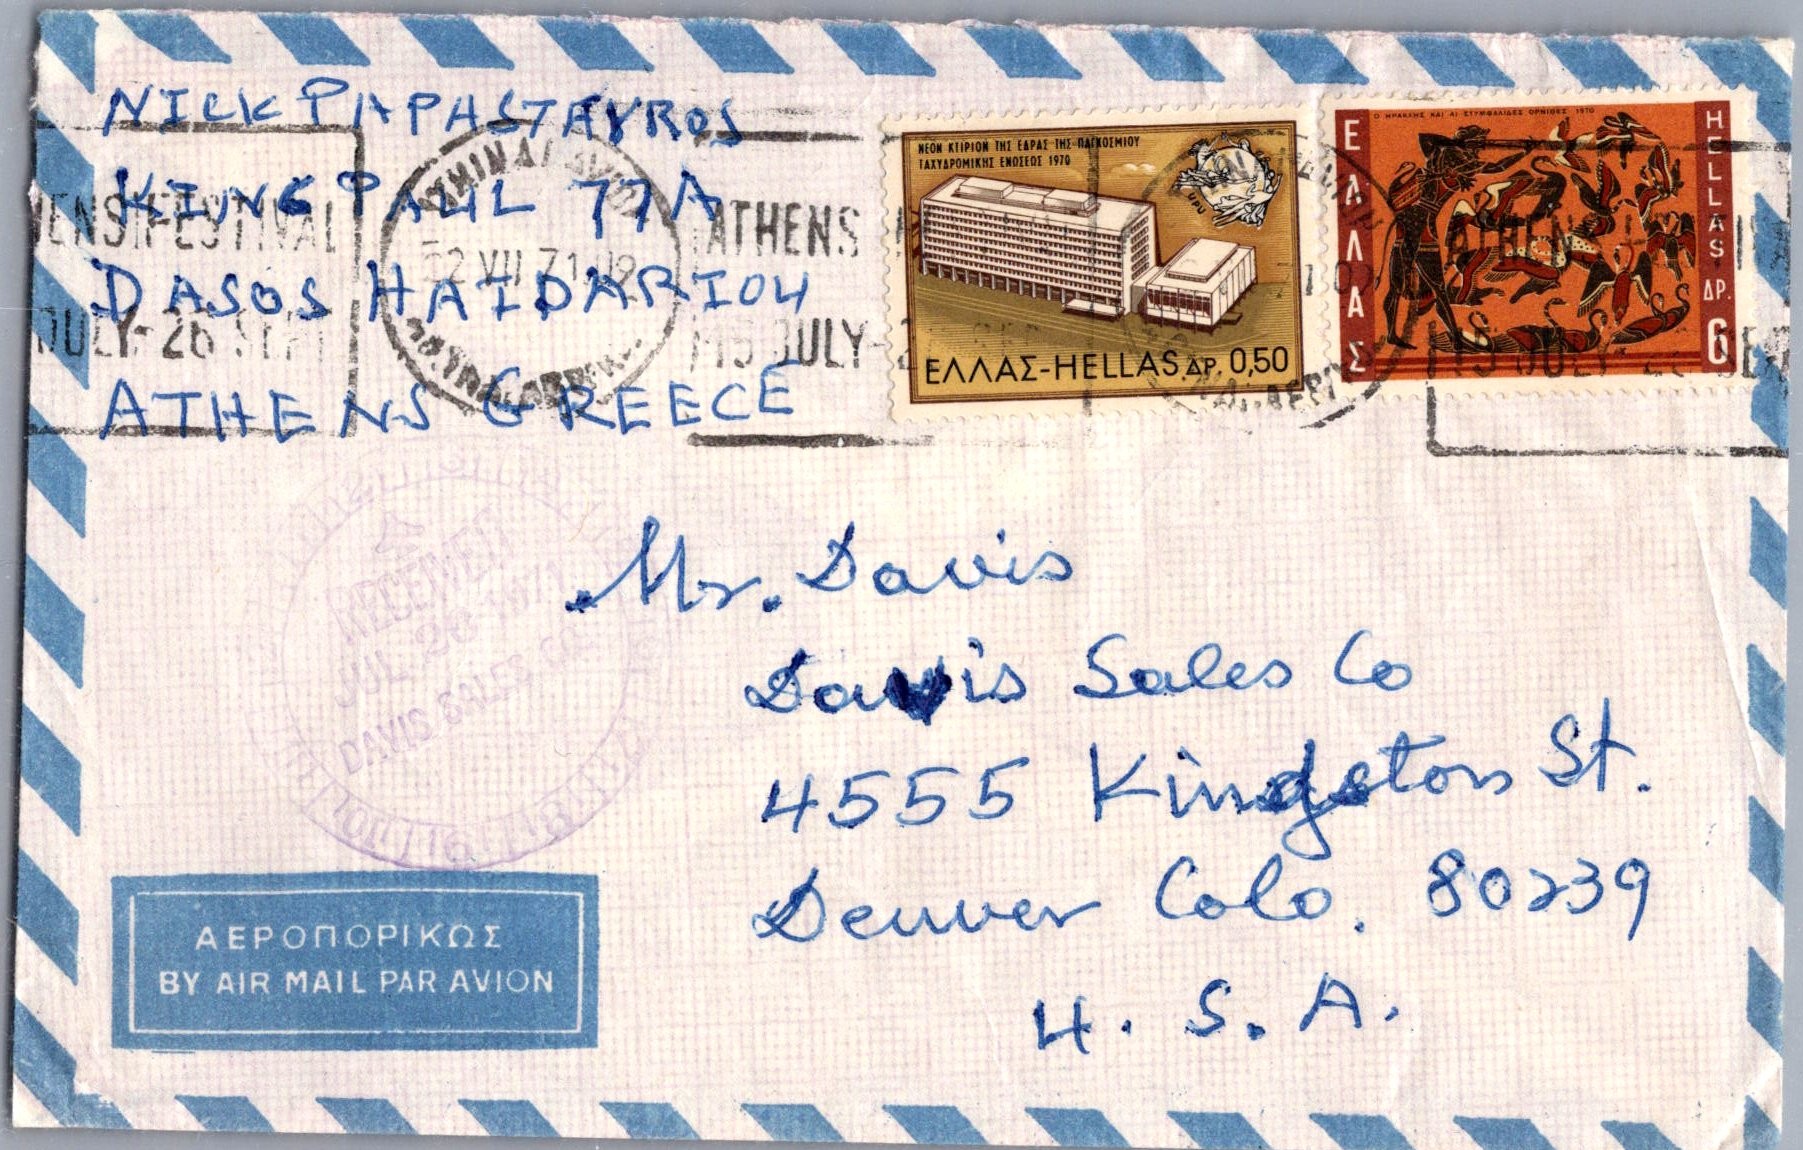 NICK PAPASTAVROS
KING PAUL 77A
DASOS HAIDARIOU
ATHENS GREECE
ENS FESTIVAL
JULY-26 SEPT
VII 71
ATHENS
15 JULY-
ΝΕΟΝ ΚΤΙΡΙΟΝ ΤΗΣ ΕΔΡΑΣ ΤΗΣ ΠΑΓΚΟΣΜΙΟΥ
ΤΑΧΥΔΡΟΜΙΚΗΣ ΕΝΩΣΕΩΣ 1970
UPU
ΕΛΛΑΣ-HELLAS ΔΡ. 0,50
Ο ΗΡΑΚΛΗΣ ΚΑΙ ΑΙ ΣΤΥΜΦΑΛΙΔΕΣ ΟΡΝΙΘΕΣ 1970
ΕΛΛΑΣ
HELLAS ΔΡ. 6
RECEIVED
JUL 26 1971
DAVIS SALES CO.
Mr. Davis
Davis Sales Co
4555 Kingston St.
Denver Colo. 80239
U. S. A.
ΑΕΡΟΠΟΡΙΚΩΣ
BY AIR MAIL PAR AVION